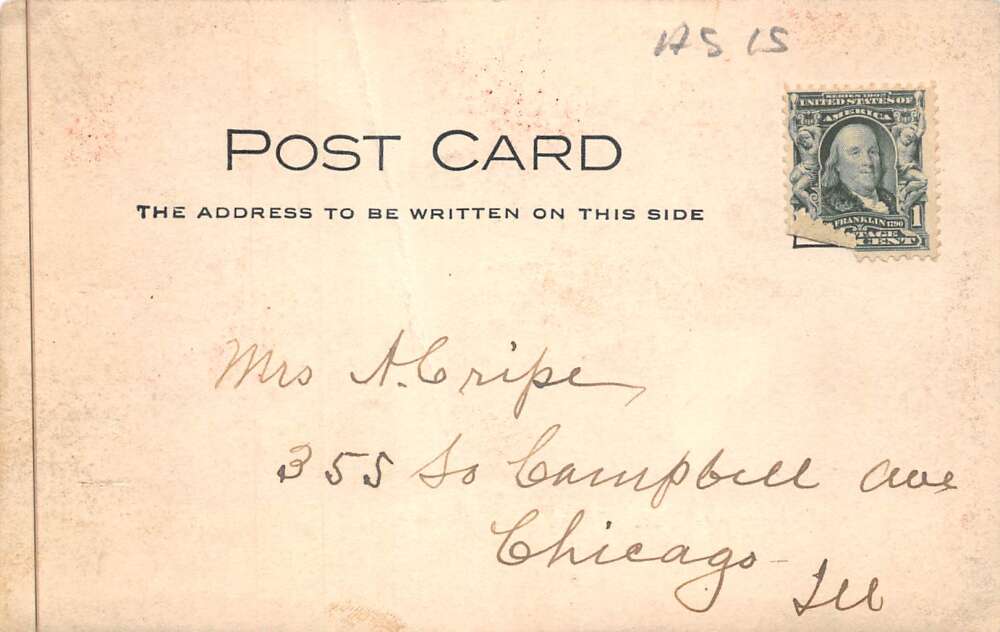 AS 15
POST CARD
THE ADDRESS TO BE WRITTEN ON THIS SIDE
SERIES 1902
UNITED STATES OF
AMERICA
FRANKLIN 1790
1
Mrs A. Cripe
355 So Campbell Ave
Chicago
Ill